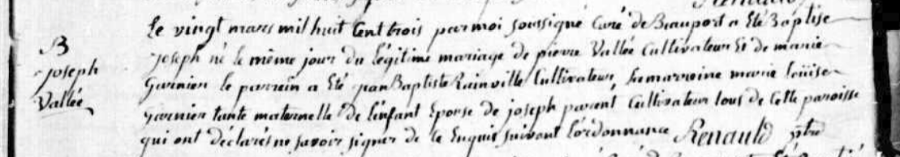 B
joseph
Vallée
Le vingt mars mil huit Cent trois par moi soussigné Curé de Beauport a Eté Baptisé
joseph né le même jour du légitime mariage de pierre Vallée Cultivateur Et de marie
Garnier le parrein a Eté jean Baptiste Rainville Cultivateur, la marreine marie loüise
Garnier tante maternelle de l'enfant Epouse de joseph parent Cultivateur tous de Cette paroisse
qui ont déclarés ne savoir signer de Ce Enquis suivant l'ordonnance Renauld ptre